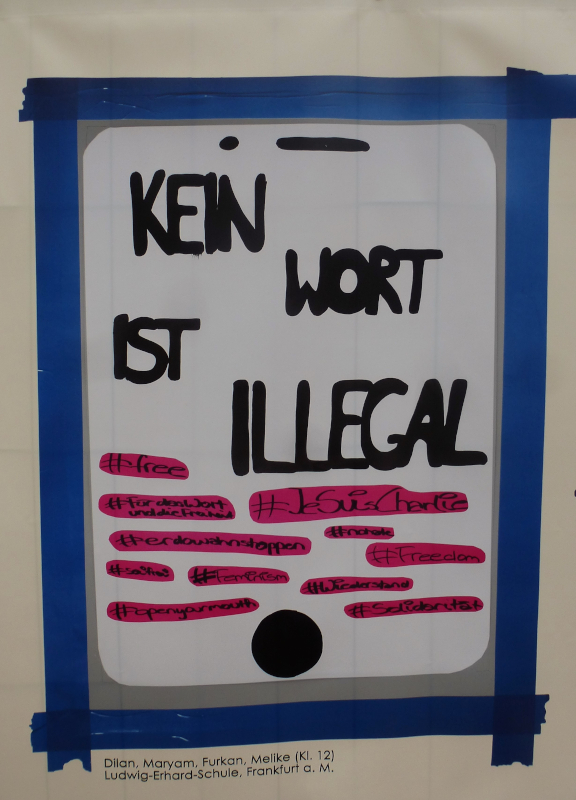 KEIN
WORT
IST
ILLEGAL
#free
#FürdasWort
unddieFreiheit
#JeSuisCharlie
#erdowahnstoppen
#nohate
#Freedom
#seifrei
#Feminism
#Wiederstand
#openyourmouth
#Solidarität
Dilan, Maryam, Furkan, Melike (Kl. 12)
Ludwig-Erhard-Schule, Frankfurt a. M.